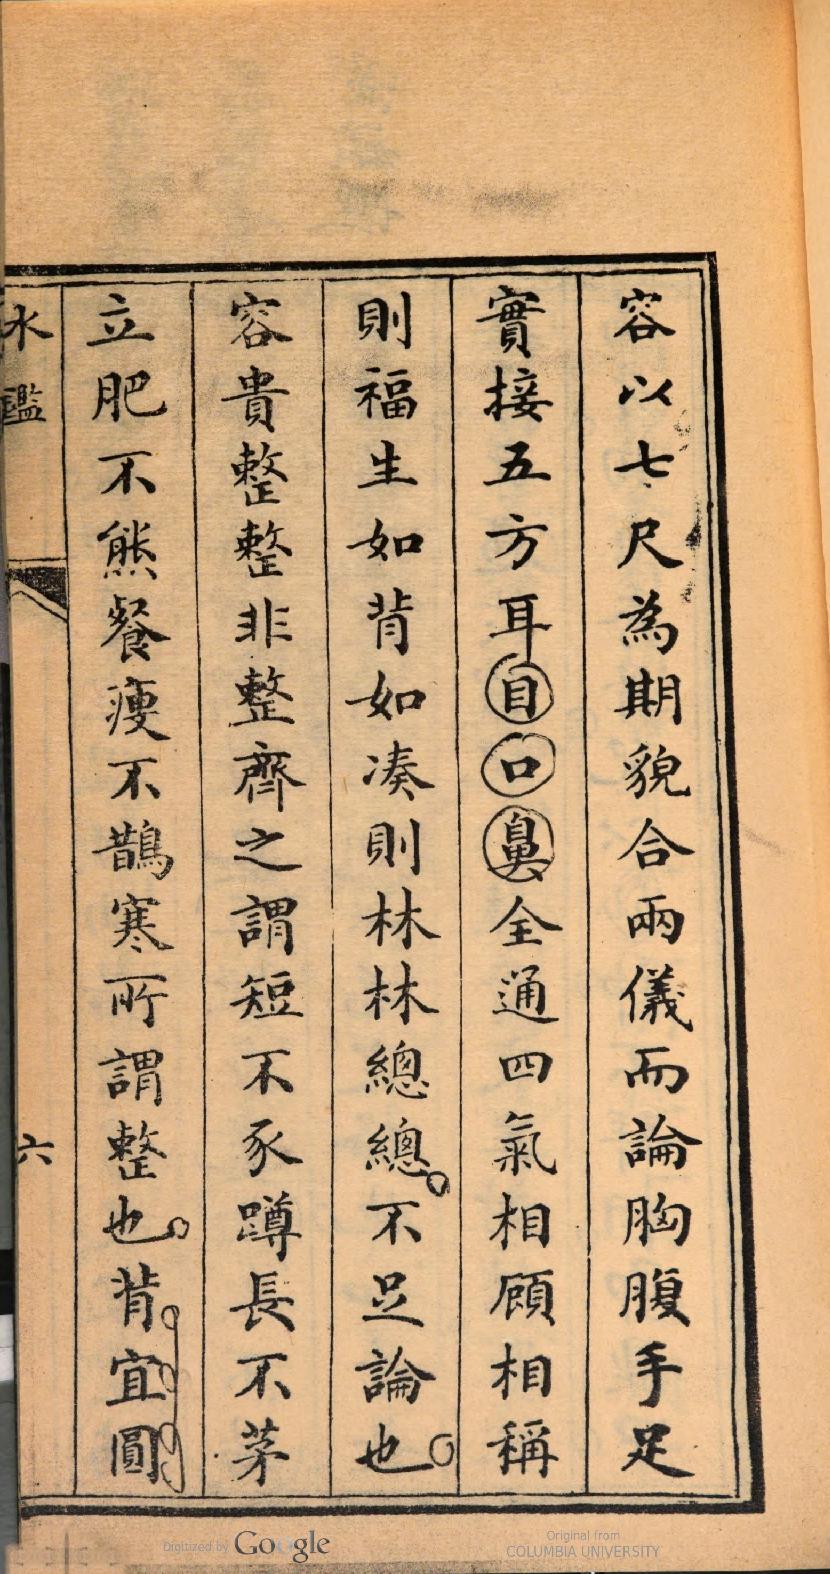 容以七尺為期貌合兩儀而論胸腹手足
實接五方耳目口鼻全通四氣相顧相稱
則福生如背如湊則林林總總不足論也
容貴整整非整齊之謂短不豕蹲長不茅
立肥不熊餐瘦不鵲寒所謂整也背宜圓
水鑑
六
Digitized by Google
Original from
COLUMBIA UNIVERSITY